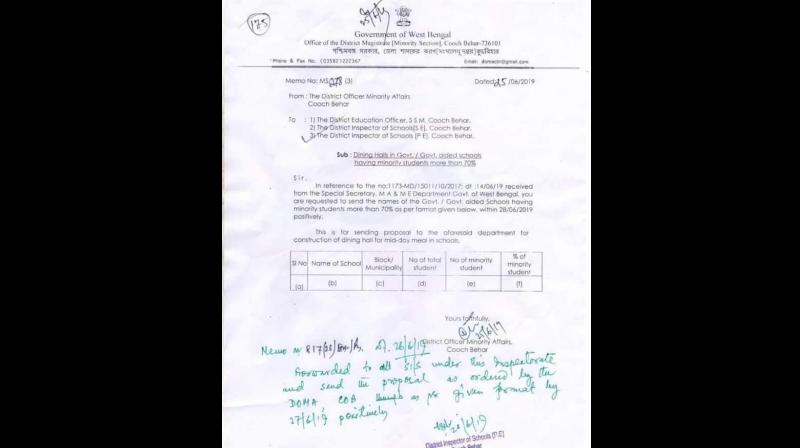 175
Government of West Bengal
Office of the District Magistrate [Minority Section], Cooch Behar-736101
Phone & Fax No. (03582)222367 Email: domacb@gmail.com
Memo No: MS/ (3) Dated: 25/06/2019
From : The District Officer Minority Affairs
Cooch Behar
To : 1) The District Education Officer, S.S.M. Cooch Behar.
2) The District Inspector of Schools[S.E], Cooch Behar.
3) The District Inspector of Schools [P.E], Cooch Behar.
Sub : Dining Halls in Govt. / Govt. aided schools
having minority students more than 70%
Sir,
In reference to the no:1173-MD/15011/10/2017; dt :14/06/19 received
from the Special Secretary, M A & M E Department Govt. of West Bengal, you
are requested to send the names of the Govt. / Govt. aided Schools having
minority students more than 70% as per format given below, within 28/06/2019
positively.
This is for sending proposal to the aforesaid department for
construction of dining hall for mid-day meal in schools.
Sl No Name of School Block/ Municipality No of total student No of minority student % of minority student
(a) (b) (c) (d) (e) (f)
Yours faithfully,
25/6/19
District Officer Minority Affairs,
Cooch Behar
Memo no 817(28) dt. 26/6/19
Forwarded to all SIS under this Inspectorate
and send the proposal as ordered by the
DOMA COB as per given format by
27/6/19 positively
26/6/19
District Inspector of Schools (P.E)
Cooch Behar